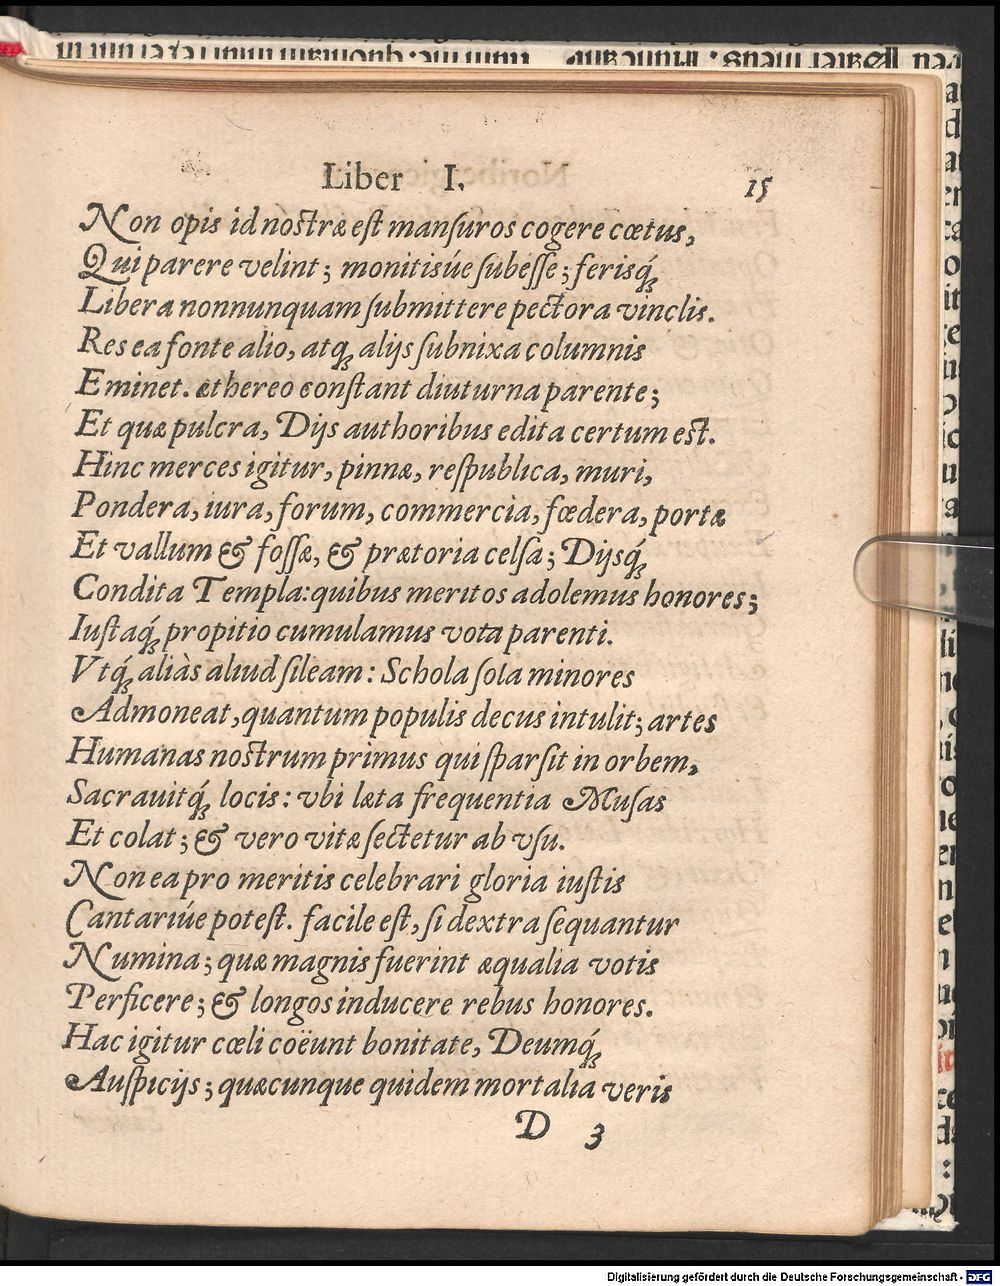 Liber I. 15
Non opis id nostræ est mansuros cogere cœtus,
Qui parere velint; monitisúe subesse; ferisq́;
Libera nonnunquam submittere pectora vinclis.
Res ea fonte alio, atq; alijs subnixa columnis
Eminet. æthereo constant diuturna parente;
Et quæ pulcra, Dijs authoribus edita certum est.
Hinc merces igitur, pinnæ, respublica, muri,
Pondera, iura, forum, commercia, fœdera, portæ
Et vallum & fossæ, & prætoria celsa; Dijsq́;
Condita Templa: quibus meritos adolemus honores;
Iustaq́; propitio cumulamus vota parenti.
Vtq́; aliàs aliud sileam: Schola sola minores
Admoneat, quantum populis decus intulit; artes
Humanas nostrum primus qui sparsit in orbem,
Sacrauitq́; locis: vbi læta frequentia Musas
Et colat; & vero vitæ sectetur ab vsu.
Non ea pro meritis celebrari gloria iustis
Cantariúe potest. facile est, si dextra sequantur
Numina; quæ magnis fuerint æqualia votis
Perficere; & longos inducere rebus honores.
Hac igitur cœli coëunt bonitate, Deumq́;
Auspicijs; quæcunque quidem mortalia veris
D 3
Digitalisierung gefördert durch die Deutsche Forschungsgemeinschaft - DFG